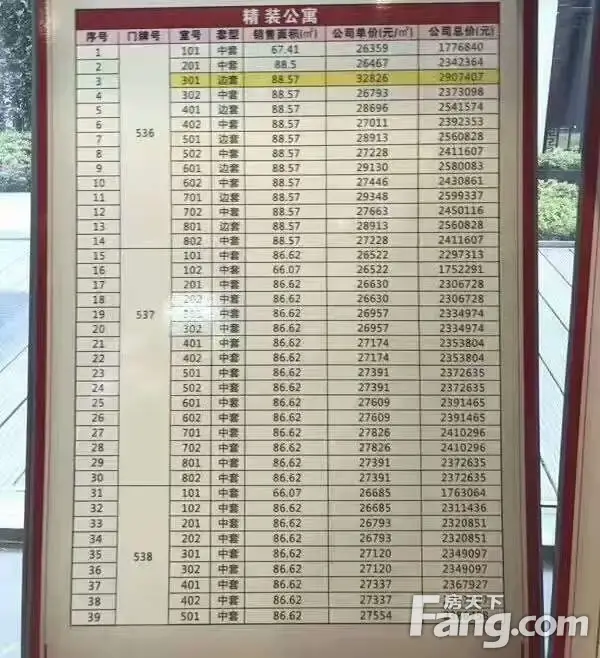 精装公寓
序号 门牌号 室号 套型 销售面积(㎡) 公司单价(元/㎡) 公司总价(元)
1 101 中套 67.41 26359 1776840
2 201 中套 88.5 26467 2342364
3 301 边套 88.57 32826 2907407
4 302 中套 88.57 26793 2373098
5 401 边套 88.57 28696 2541574
6 402 中套 88.57 27011 2392353
7 536 501 边套 88.57 28913 2560828
8 502 中套 88.57 27228 2411607
9 601 边套 88.57 29130 2580083
10 602 中套 88.57 27446 2430861
11 701 边套 88.57 29348 2599337
12 702 中套 88.57 27663 2450116
13 801 边套 88.57 28913 2560828
14 802 中套 88.57 27228 2411607
15 101 中套 86.62 26522 2297313
16 102 中套 66.07 26522 1752291
17 201 中套 86.62 26630 2306728
18 202 中套 86.62 26630 2306728
19 537 中套 86.62 26957 2334974
20 302 中套 86.62 26957 2334974
21 401 中套 86.62 27174 2353804
22 402 中套 86.62 27174 2353804
23 501 中套 86.62 27391 2372635
24 502 中套 86.62 27391 2372635
25 601 中套 86.62 27609 2391465
26 602 中套 86.62 27609 2391465
27 701 中套 86.62 27826 2410296
28 702 中套 86.62 27826 2410296
29 801 中套 86.62 27391 2372635
30 802 中套 86.62 27391 2372635
31 101 中套 66.07 26685 1763064
32 102 中套 86.62 26685 2311436
33 201 中套 86.62 26793 2320851
34 202 中套 86.62 26793 2320851
35 538 301 中套 86.62 27120 2349097
36 302 中套 86.62 27120 2349097
37 401 中套 86.62 27337 2367927
38 402 中套 86.62 27337
39 501 中套 86.62 27554
房天下
Fang.com